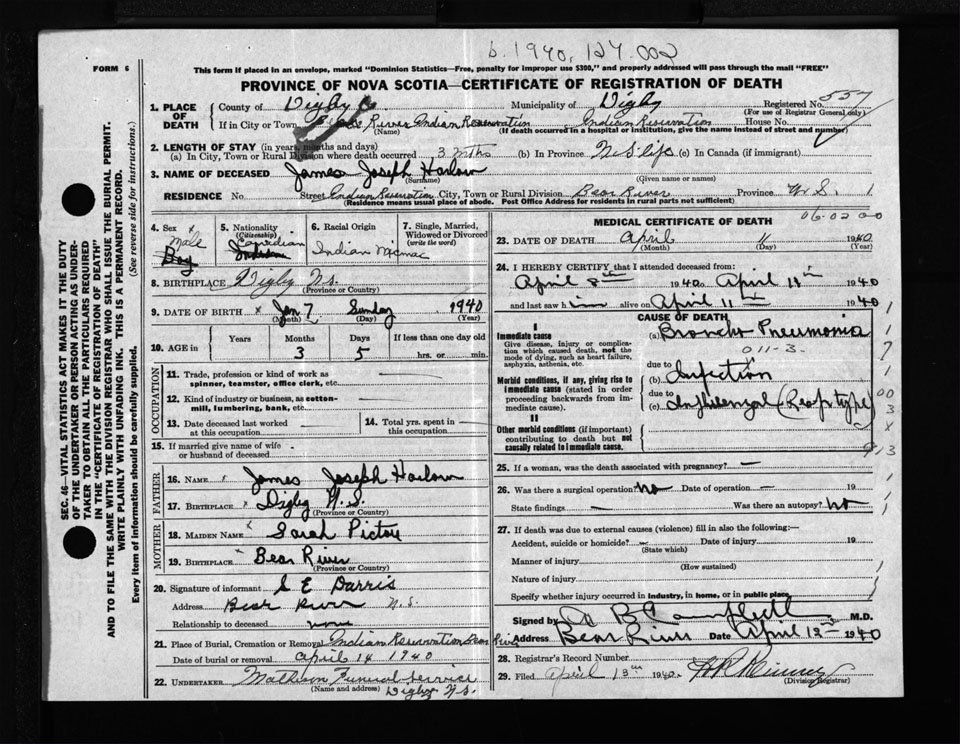 b. 1940, 127.002
FORM 6
This form if placed in an envelope, marked "Dominion Statistics—Free, penalty for improper use $300," and properly addressed will pass through the mail "FREE"
PROVINCE OF NOVA SCOTIA—CERTIFICATE OF REGISTRATION OF DEATH
SEC. 46—VITAL STATISTICS ACT MAKES IT THE DUTY
OF THE UNDERTAKER OR PERSON ACTING AS UNDER-
TAKER TO OBTAIN ALL THE PARTICULARS REQUIRED
IN THE "CERTIFICATE OF REGISTRATION OF DEATH"
AND TO FILE THE SAME WITH THE DIVISION REGISTRAR WHO SHALL ISSUE THE BURIAL PERMIT.
WRITE PLAINLY WITH UNFADING INK. THIS IS A PERMANENT RECORD.
Every item of information should be carefully supplied. (See reverse side for instructions.)
1. PLACE OF DEATH County of Digby Co. Municipality of Digby Registered No. 557
(For use of Registrar General only)
If in City or Town Bear River Indian Reservation Indian Reservation House No.
(Name) (If death occurred in a hospital or institution, give the name instead of street and number)
2. LENGTH OF STAY (in years, months and days)
(a) In City, Town or Rural Division where death occurred 3 mths (b) In Province N S life (c) In Canada (if immigrant)
3. NAME OF DECEASED James Joseph Harlow
(Surname) (Given name or names)
RESIDENCE No. Street Indian Reservation City, Town or Rural Division Bear River Province N.S. 1
(Residence means usual place of abode. Post Office Address for residents in rural parts not sufficient)
06.02 00
4. Sex x Male Boy
5. Nationality (Citizenship) Canadian Indian
6. Racial Origin Indian Micmac
7. Single, Married, Widowed or Divorced (write the word)
8. BIRTHPLACE Digby N.S.
(Province or Country)
9. DATE OF BIRTH x Jan 7 Sunday 1940
(Month) (Day) (Year)
10. AGE in Years Months 3 Days 5 If less than one day old
hrs. or min.
OCCUPATION
11. Trade, profession or kind of work as
spinner, teamster, office clerk, etc.
12. Kind of industry or business, as cotton-
mill, lumbering, bank, etc.
13. Date deceased last worked
at this occupation
14. Total yrs. spent in
this occupation
15. If married give name of wife
or husband of deceased
FATHER
16. NAME James Joseph Harlow
17. BIRTHPLACE x Digby N.S.
(Province or Country)
MOTHER
18. MAIDEN NAME x Sarah Pictou
19. BIRTHPLACE x Bear River
(Province or Country)
20. Signature of informant S E Darris
Address Bear River N.S.
Relationship to deceased none
21. Place of Burial, Cremation or Removal Indian Reservation Bear River
Date of burial or removal April 14 1940
22. UNDERTAKER Funeral Service
(Name and address) Digby N.S.
MEDICAL CERTIFICATE OF DEATH
23. DATE OF DEATH April 11 1940
(Month) (Day) (Year)
24. I HEREBY CERTIFY that I attended deceased from:
April 8th 1940 to April 11th 1940
and last saw him alive on April 11th 1940
CAUSE OF DEATH
I
Immediate cause
Give disease, injury or complica-
tion which caused death, not the
mode of dying, such as heart failure,
asphyxia, asthenia, etc.
(a) Broncho Pneumonia
011-3.
due to
Morbid conditions, if any, giving rise to
immediate cause (stated in order
proceeding backwards from im-
mediate cause).
(b) Infection
due to
(c) Influenzal (Resp type)
II
Other morbid conditions (if important)
contributing to death but not
causally related to immediate cause.
25. If a woman, was the death associated with pregnancy? —
26. Was there a surgical operation no Date of operation — 19
State findings — Was there an autopsy? no
27. If death was due to external causes (violence) fill in also the following:—
Accident, suicide or homicide? — Date of injury 19
(State which)
Manner of injury
(How sustained)
Nature of injury
Specify whether injury occurred in industry, in home, or in public place
Signed by A B Campbell M.D.
Address Bear River Date April 13th 1940
28. Registrar's Record Number
29. Filed April 13th 1940.
(Division Registrar)